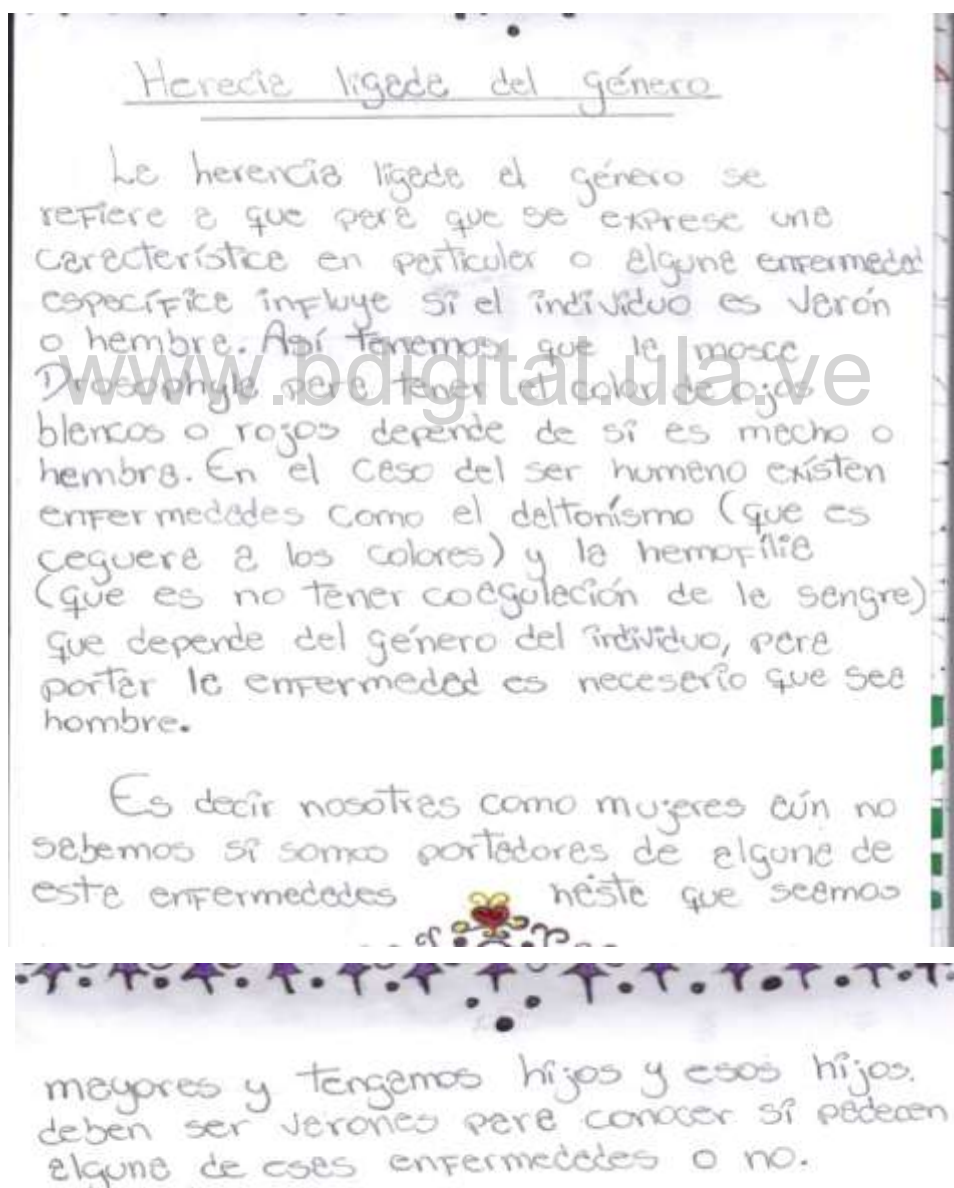 Herecia ligada del género
La herencia ligada al género se
refiere a que para que se exprese una
característica en particular o alguna enfermedad
específica influye si el individuo es varón
o hembra. Así tenemos que la mosca
www.bdigital.ula.ve
Drosophyla para tener el color de ojos
blancos o rojos depende de si es macho o
hembra. En el caso del ser humano existen
enfermedades como el daltonismo (que es
ceguera a los colores) y la hemofilia
(que es no tener coagulación de la sangre)
que depende del género del individuo, para
portar la enfermedad es necesario que sea
hombre.
Es decir nosotras como mujeres aún no
sabemos si somos portadores de alguna de
esta enfermedades haste que seamos
mayores y tengamos hijos y esos hijos.
deben ser varones para conocer si padecen
alguna de esas enfermedades o no.